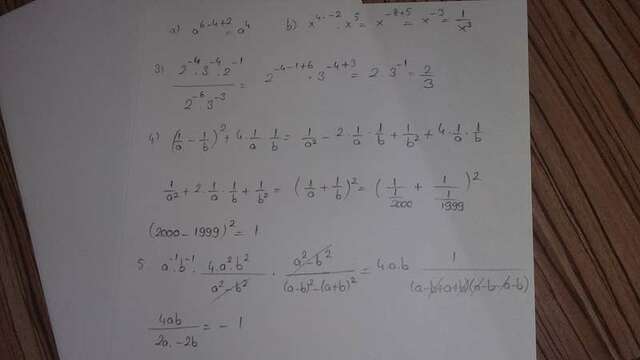 a) a^(6-4+2) = a^4   b) x^4·(-2) · x^5 = x^(-8+5) = x^(-3) = 1/x^3
3) (2^(-4) · 3^(-4) · 2^(-1)) / (2^(-6) · 3^(-3)) = 2^(-4-1+6) · 3^(-4+3) = 2 · 3^(-1) = 2/3
4) (1/a - 1/b)^2 + 4 1/a · 1/b = 1/a^2 - 2 1/a · 1/b + 1/b^2 + 4 1/a · 1/b
1/a^2 + 2 1/a 1/b + 1/b^2 = (1/a + 1/b)^2 = (1/(1/2000) + 1/(1/1999))^2
(2000 - 1999)^2 = 1
5 a^(-1) · b^(-1) · 4a^2·b^2/(a^2-b^2) · (a^2-b^2)/((a-b)^2-(a+b)^2) = 4ab 1/((a-b+a+b)(a-b-a-b))
4ab/(2a·-2b) = -1